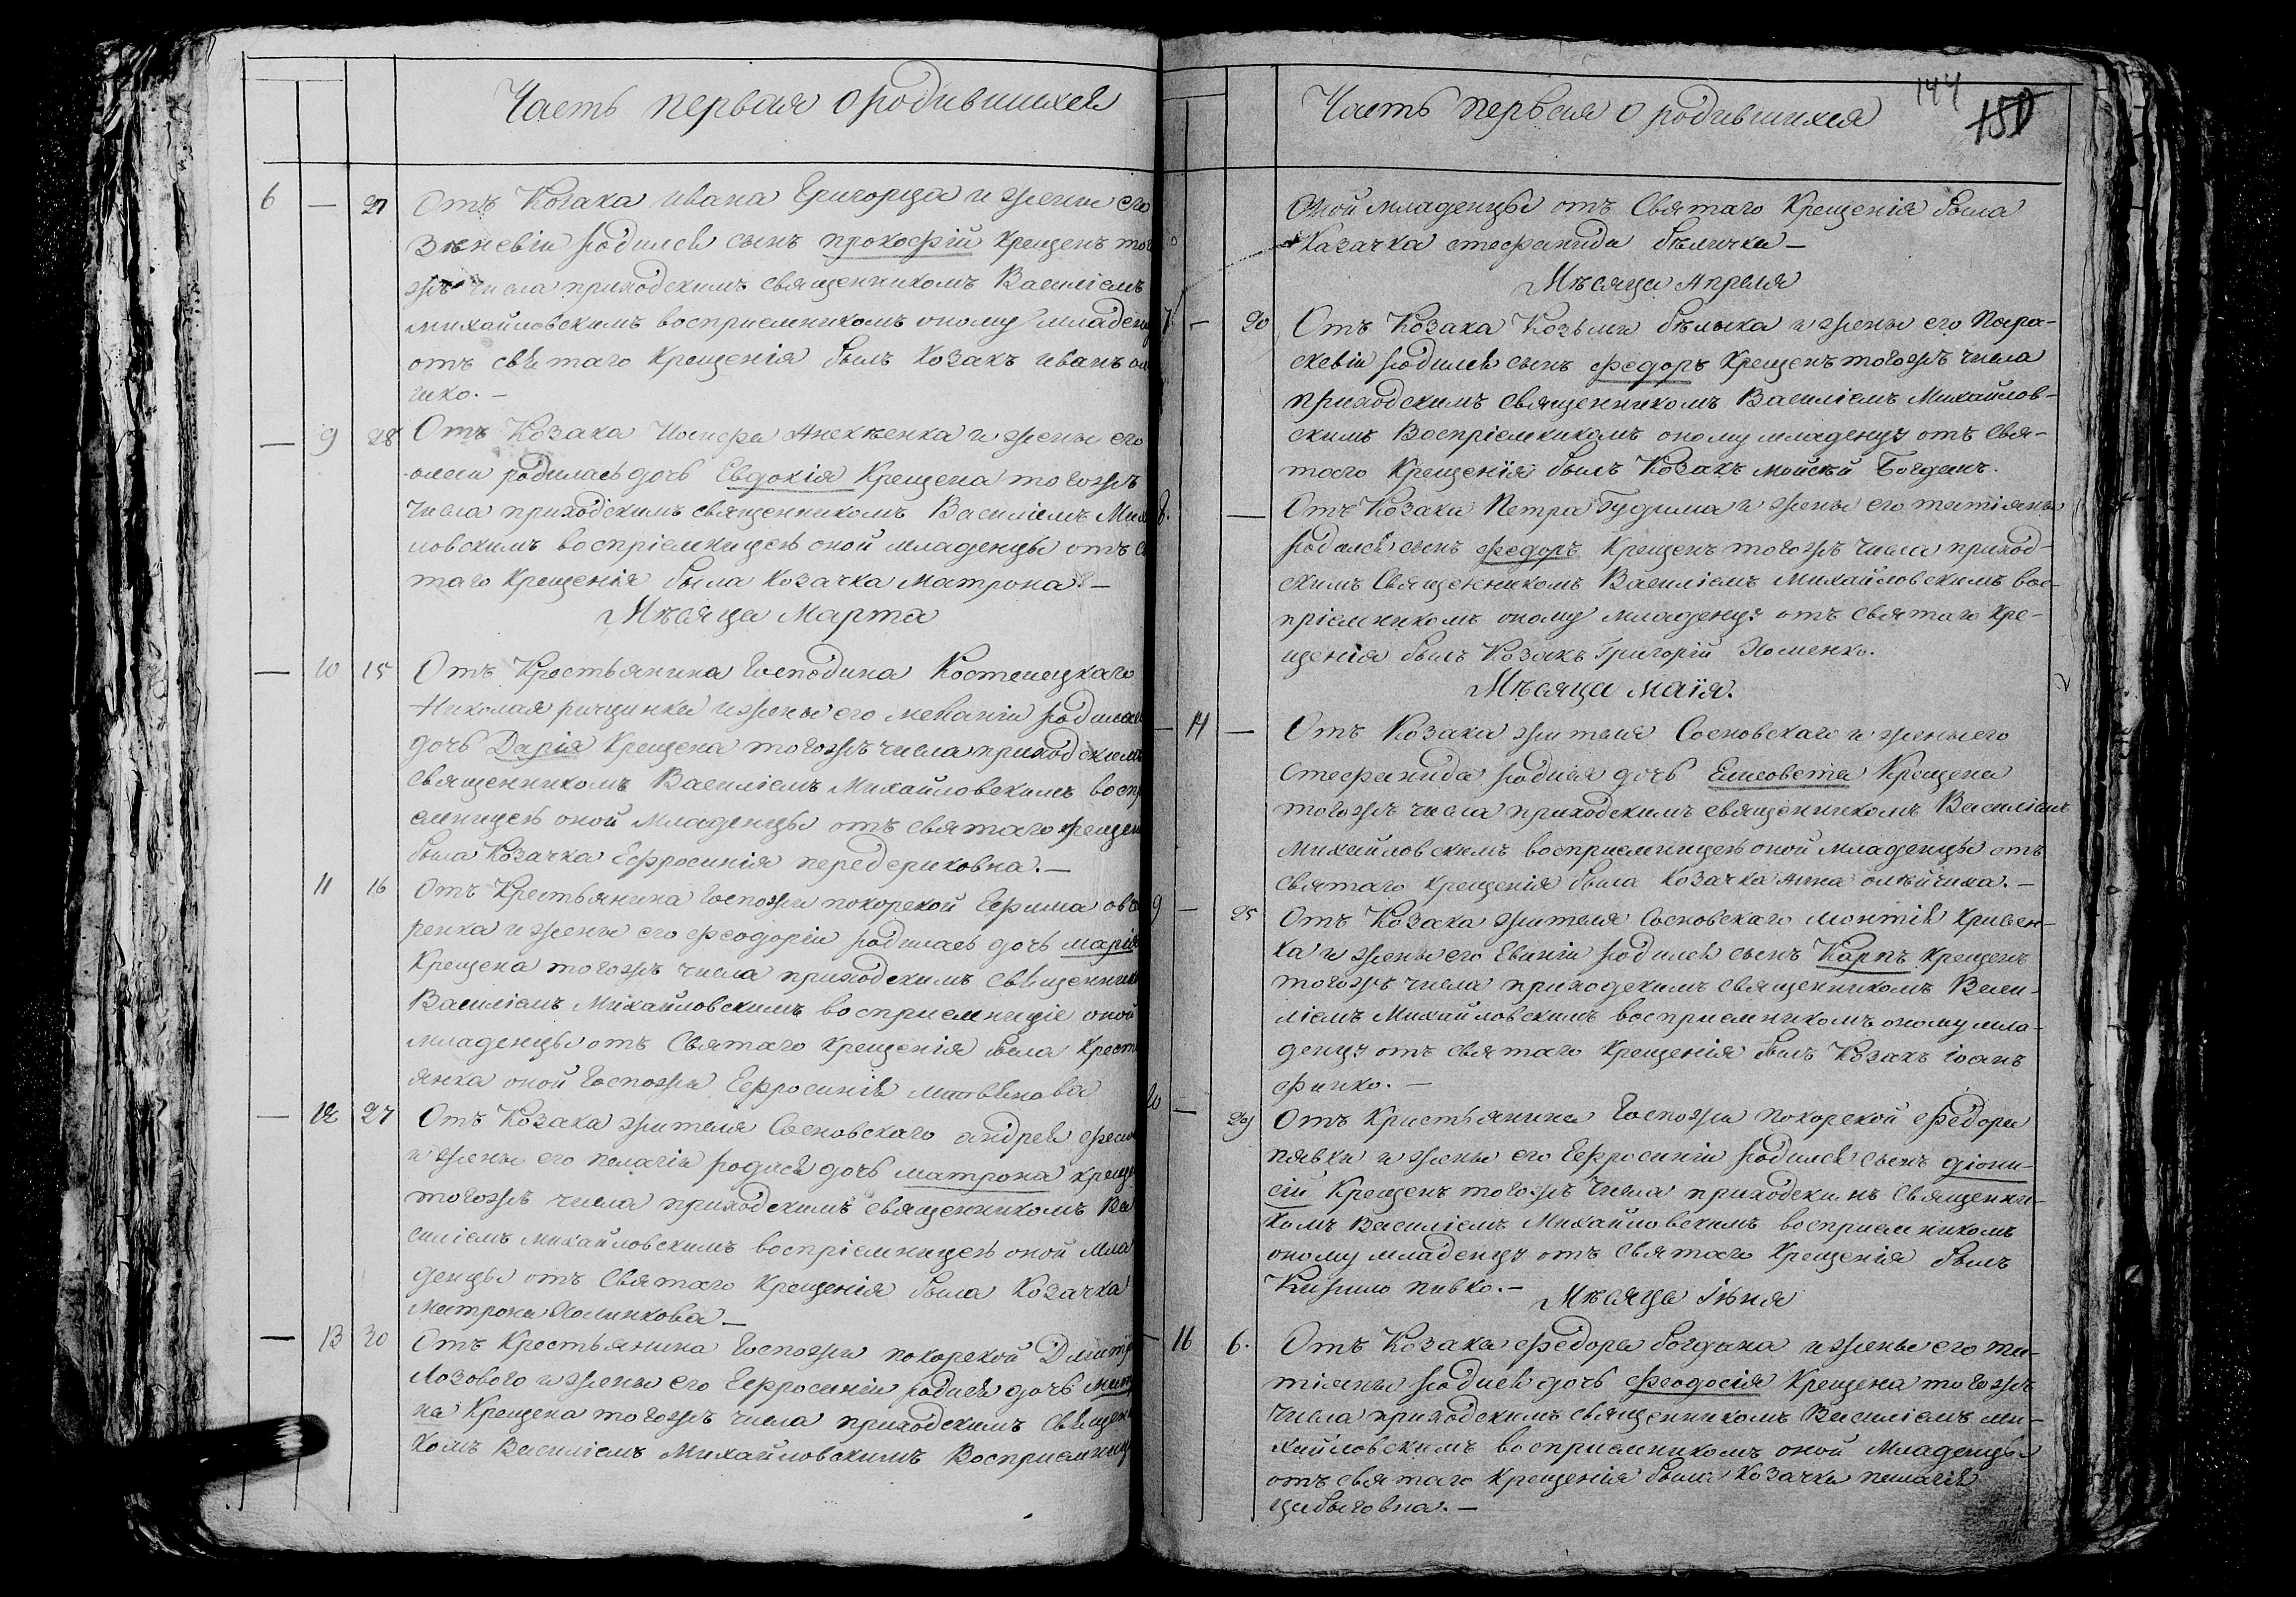 Часть первая о родившихся
6 — 27 Отъ Козака ивана Григорца и жени его
Зѣневіи родился сынъ прокофій крещенъ того
жъ числа приходскимъ священникомъ Василіемъ
михайловскимъ восприемникомъ оному младенцу
отъ святаго Крещенія былъ Козакъ иванъ
чко. —
— 9 28 Отъ Козака Иосифа и жены его
родилась дочъ Евдокія Крещена тогожъ
числа приходскимъ священникомъ Василіемъ Миха
ловскимъ воспріемницею оной младенцы отъ с
таго Крещенія была Козачка Матрона. —
Мѣсяца Марта
— 10 15 Отъ Крестьянина Господина Костенецкаго
Николая и жены его родилась
дочъ Дарія Крещена тогожъ числа приходскимъ
священникомъ Василіемъ Михайловскимъ воспр
емницею оной младенцы отъ святаго крещен
была Козачка Ефросинія передериковна. —
11 16 Отъ Крестьянина Госпожи покорской Ефима ов
ренка и жены его феодоріи родилась дочъ марія
Крещена тогожъ числа приходскимъ священник
Василіемъ Михайловскимъ восприемницѣ оной
младенцы отъ Святаго Крещенія была Крест
янка оной Госпожи Ефросинія
— 12 27 Отъ Козака жителя Сосновскаго андрея
и жены его пелагіи родися дочъ матрона креще
тогожъ числа приходскимъ священникомъ Ва
силіемъ михайловскимъ воспріемницею оной мла
денцы отъ Святаго Крещенія была Козачка
Матрона
— 13 30 Отъ Крестьянина Госпожи покорской Дмитр
Лозового и жены его Ефросиніи родися дочъ
на Крещена тогожъ числа приходскимъ Священ
комъ Василіемъ Михайловскимъ Восприемниц
Часть первая о родившихся
144
150
Оной младенцы отъ Святаго Крещенія была
Казачка стефанида бѣличка —
Мѣсяца Апреля
7. — 20 Отъ Козака Козьми бѣлыка и жены его Пара-
скевіи родился сынъ федоръ Крещенъ тогожъ числа
приходскимъ священникомъ Василіемъ Михайлов-
скимъ Воспріемникомъ оному младенцу отъ Свя-
таго Крещенія былъ Козакъ мойсѣй Богданъ.
8. — Отъ Козака Петра Гудима и жены его татіяны
родился сынъ федоръ Крещенъ тогожъ числа приход-
скимъ Священникомъ Василіемъ Михайловскимъ вос-
пріемникомъ оному младенцу отъ святаго Кре-
щенія былъ Козакъ Григорій Хоменко.
Мѣсяца маія.
— 14 — Отъ Козака жителя Сосновскаго и жены его
Стефанида родися дочъ Елисовета Крещена
тогожъ числа приходскимъ священникомъ Василіемъ
Михайловскимъ восприемницею оной младенцы отъ
святаго Крещенія была Козачка Анна олѣйчиха. —
9 — 25 Отъ Козака жителя Сосновскаго Кривен-
ка и жены его родился сынъ Карпъ Крещенъ
тогожъ числа приходскимъ священникомъ Васи-
ліемъ Михайловскимъ восприемникомъ оному мла-
денцу отъ святаго Крещенія былъ Козакъ іоанъ
финко. —
10 — 29 Отъ Кристьянина Госпожи покорской Федора
пявки и жены его Ефросиніи родился сынъ діони-
сій Крещенъ тогожъ числа приходскимъ Священни-
комъ Василіемъ Михайловскимъ восприемникомъ
оному младенцу отъ Святаго Крещенія былъ
Кирило пивко. —
Мѣсяца Іюня
— 16 6. Отъ Козака Федора богдана и жены его та-
тіяны родися дочъ феодосія Крещена тогожъ
числа приходскимъ священникомъ Василіемъ ми-
хайловскимъ восприемникомъ оной Младенцы
отъ святаго Крещенія была Козачка пелагія
цыбыговна. —